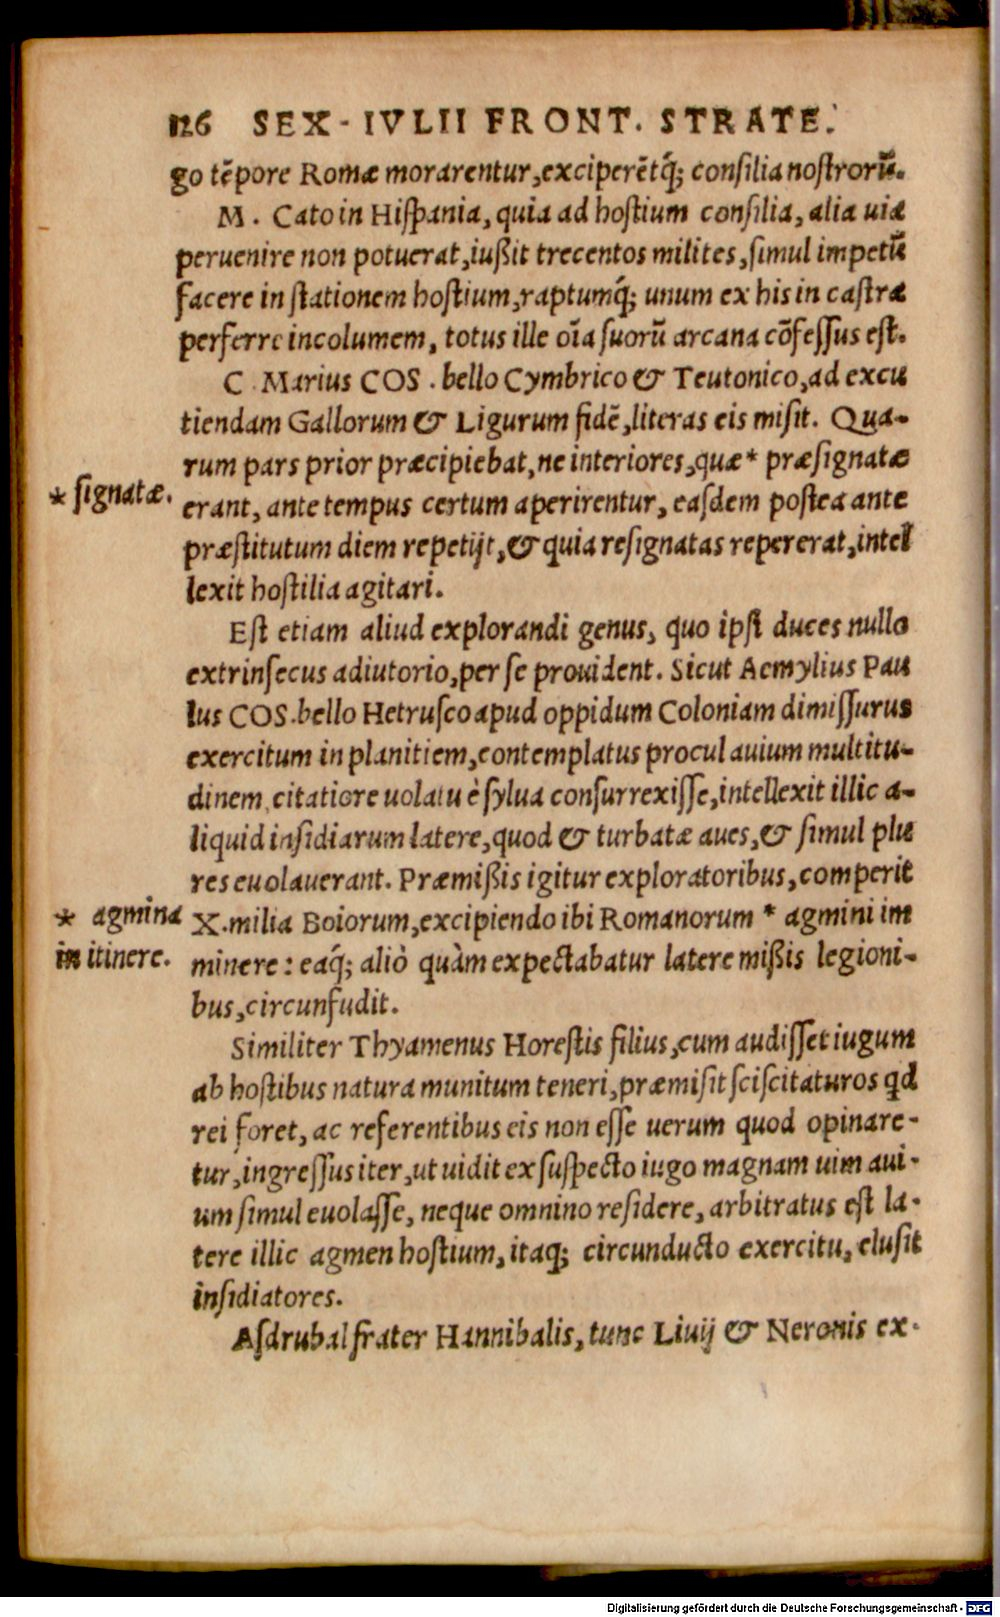 126 SEX. IVLII FRONT. STRATE.
go tẽpore Romæ morarentur, exciperẽtq́; consilia nostrorũ.
M. Cato in Hispania, quia ad hostium consilia, alia uia
peruenire non potuerat, iußit trecentos milites, simul impetũ
facere in stationem hostium, raptumq́; unum ex his in castra
perferre incolumem, totus ille oĩa suorũ arcana cõfessus est.
C. Marius COS. bello Cymbrico & Teutonico, ad excu
tiendam Gallorum & Ligurum fidẽ, literas eis misit. Qua-
rum pars prior præcipiebat, ne interiores, quæ * præsignatæ
* signatæ.
erant, ante tempus certum aperirentur, easdem postea ante
præstitutum diem repetijt, & quia resignatas repererat, intel
lexit hostilia agitari.
Est etiam aliud explorandi genus, quo ipsi duces nullo
extrinsecus adiutorio, per se prouident. Sicut Aemylius Pau
lus COS. bello Hetrusco apud oppidum Coloniam dimissurus
exercitum in planitiem, contemplatus procul auium multitu-
dinem citatiore uolatu è sylua consurrexisse, intellexit illic a-
liquid insidiarum latere, quod & turbatæ aues, & simul plu
res euolauerant. Præmißis igitur exploratoribus, comperit
* agmina
X. milia Boiorum, excipiendo ibi Romanorum * agmini im
in itinere.
minere: eaq́; aliò quàm expectabatur latere mißis legioni-
bus, circunfudit.
Similiter Thyamenus Horestis filius, cum audisset iugum
ab hostibus natura munitum teneri, præmisit sciscitaturos qd
rei foret, ac referentibus eis non esse uerum quod opinare-
tur, ingressus iter, ut uidit ex suspecto iugo magnam uim aui-
um simul euolasse, neque omnino residere, arbitratus est la-
tere illic agmen hostium, itaq; circunducto exercitu, elusit
insidiatores.
Asdrubal frater Hannibalis, tunc Liuij & Neronis ex-
Digitalisierung gefördert durch die Deutsche Forschungsgemeinschaft - DFG